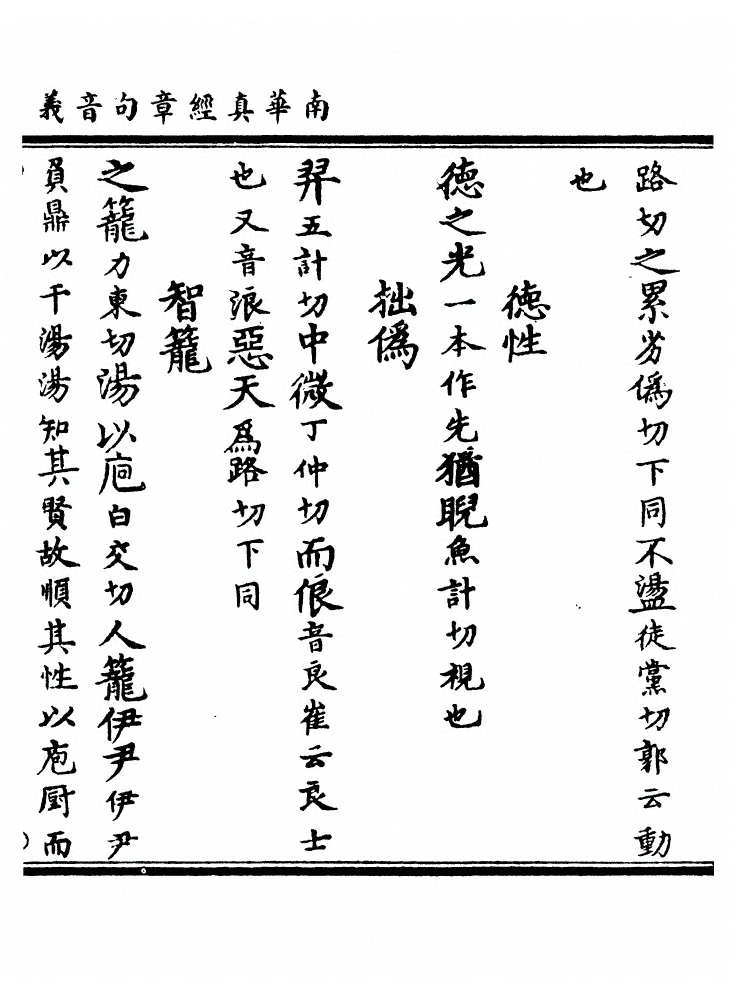 南華真經章句音義
路切之累劣僞切下同不盪徒黨切郭云動
也
德性
德之光一本作先猶睨魚計切視也
拙僞
羿五計切中微丁仲切而俍音良崔云良士
也又音浪惡天爲路切下同
智籠
之籠力東切湯以庖白交切人籠伊尹伊尹
負鼎以干湯湯知其賢故順其性以庖厨而